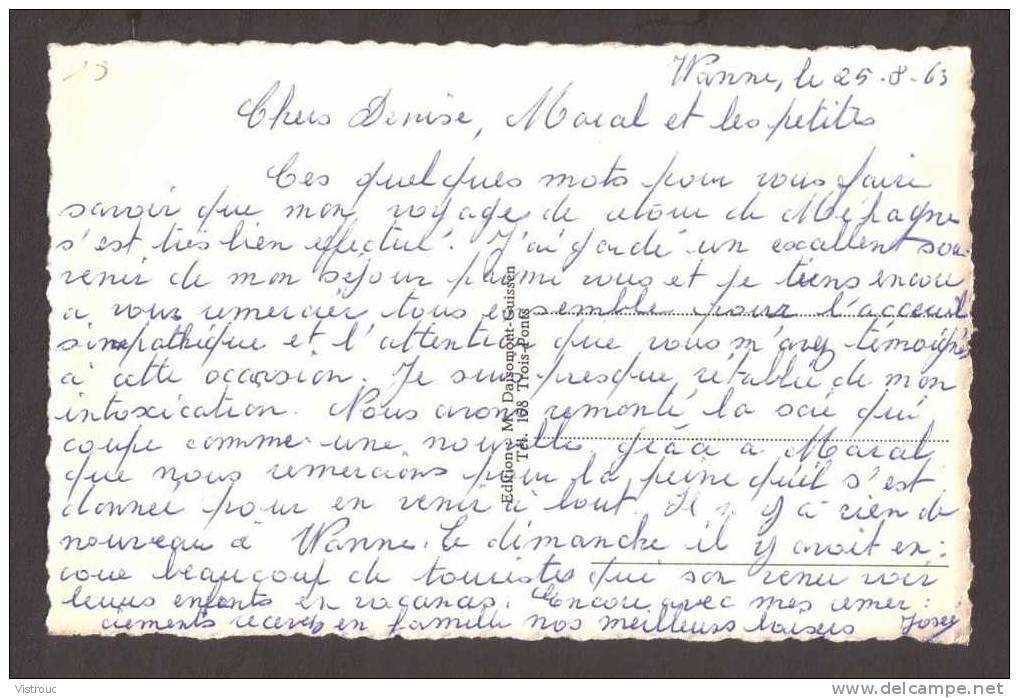 Wanne, le 25-8-63
Chers Denise, Marcal et les petites
Ces quelques mots pour vous faire
savoir que mon voyage de retour de
s'est très bien effectué. J'ai gardé un excellent sou:
venir de mon séjour parmi vous et je tiens encore
à vous remercier tous ensemble pour l'acceuil
simpathique et l'attention que vous m'avez témoigné
à cette occasion. Je suis presque rétablie de mon
intoxication. Nous avons remonté la scie qui
coupe comme une nouvelle grâce à Marcal
que nous remercions pour la peine qu'il s'est
donnée pour en venir à bout. Il n y a rien de
nouveau à Wanne. Ce dimanche il y avait en:
core beaucoup de touristes qui son venu voir
leurs enfants en vacances. Encore avec mes remer:
ciements recevez en famille nos meilleurs baisers Josée
Edition : M. Dansmont-Guissen
Tél. 198 Trois-Ponts
13
Vistrouc
delcampe.net